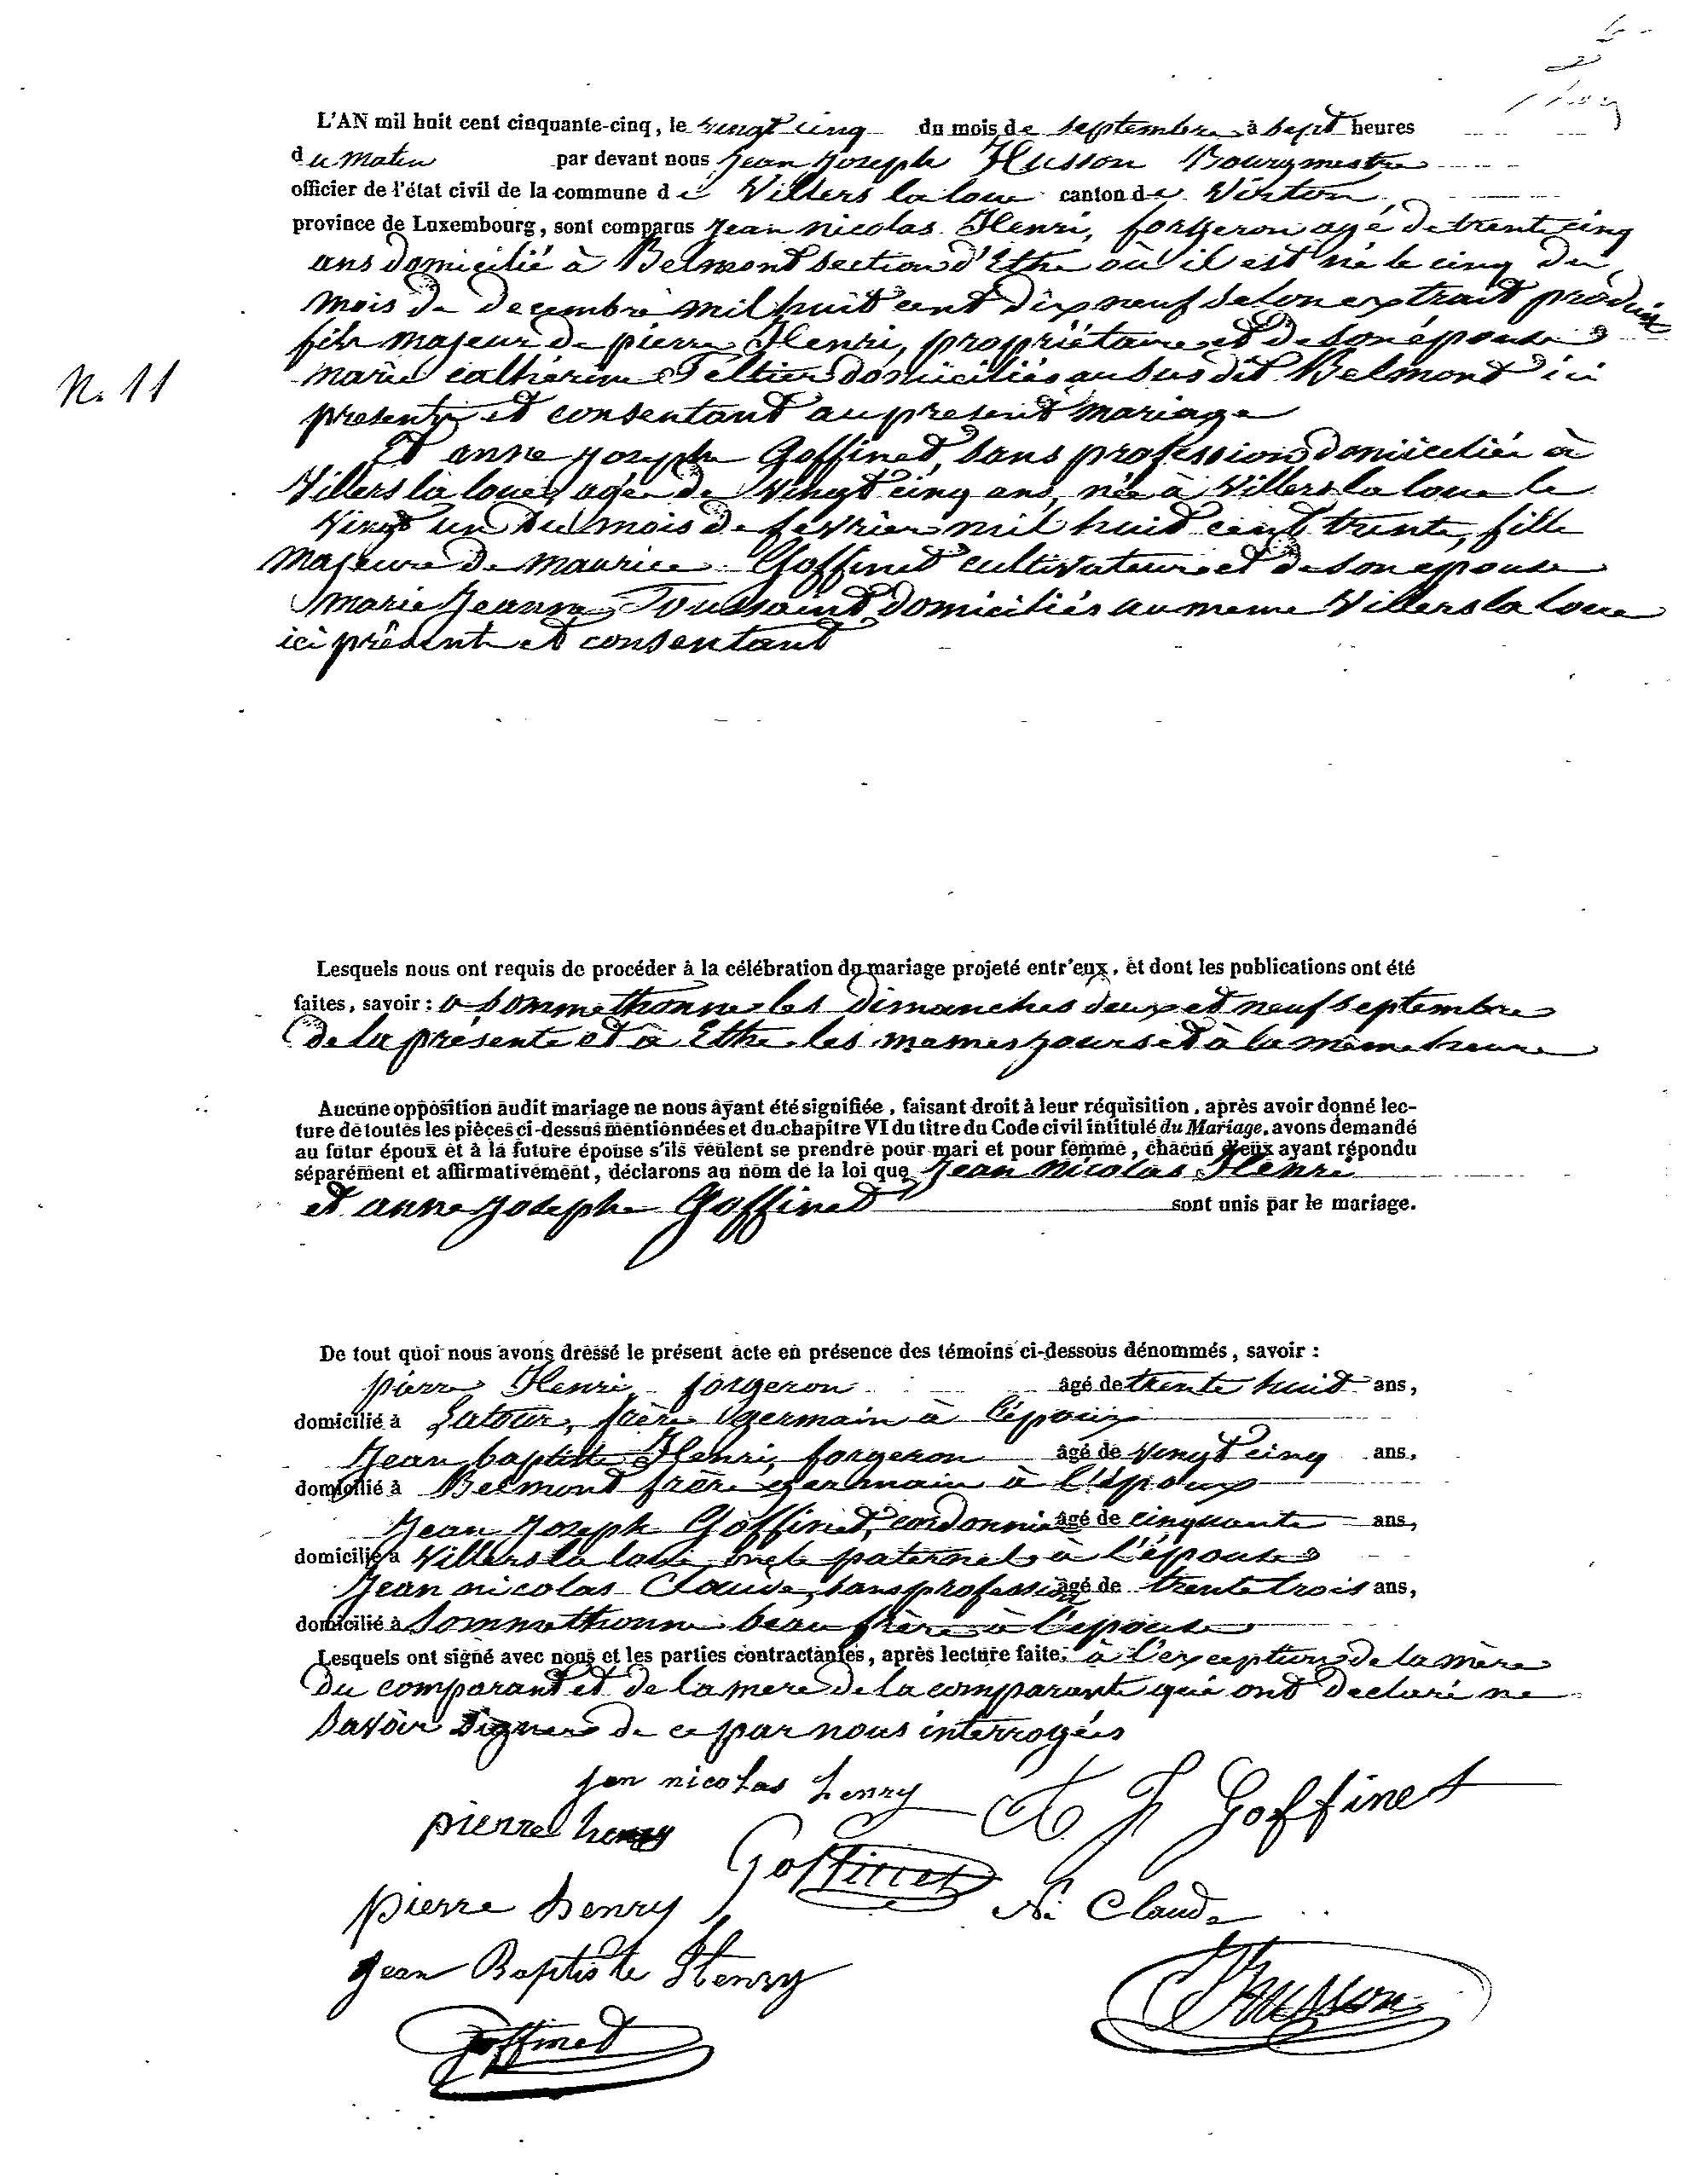 L'AN mil huit cent cinquante-cinq, le vingt cinq du mois de septembre à sept heures
du matin par devant nous Jean Joseph Husson Bourgmestre
officier de l'état civil de la commune de Villers la loue canton de Virton,
province de Luxembourg, sont comparus Jean nicolas Henri, forgeron agé de trente cinq
ans domicilié à Belmont section d'Ethe où il est né le cinq du
mois de decembre mil huit cent dix neuf selon extrait produit
fils majeur de pierre Henri, propriétaire et de son épouse
N. 11
marie catherine Peltier domiciliés au susdit Belmont ici
presents et consentant au present mariage
Et anne joseph Goffinet, sans profession domiciliée à
Villers la loue, agée de vingt cinq ans, née à Villers la loue le
vingt un du mois de fevrier mil huit cent trente, fille
majeure de maurice Goffinet cultivateur et de son epouse
marie Jeanne Toussaint domiciliés au meme Villers la loue
ici présent et consentant
Lesquels nous ont requis de procéder à la célébration du mariage projeté entr'eux, et dont les publications ont été
faites, savoir : a sommethonne les dimanches deux et neuf septembre
de la présente et à Ethe les memes jours et à la même heure
Aucune opposition audit mariage ne nous ayant été signifiée, faisant droit à leur réquisition, après avoir donné lec-
ture de toutes les pièces ci-dessus mentionnées et du chapitre VI du titre du Code civil intitulé du Mariage, avons demandé
au futur époux et à la future épouse s'ils veulent se prendre pour mari et pour femme, chacun d'eux ayant répondu
séparément et affirmativement, déclarons au nom de la loi que Jean Nicolas Henri
et anne Joseph Goffinet sont unis par le mariage.
De tout quoi nous avons dressé le présent acte en présence des témoins ci-dessous dénommés, savoir :
pierre Henri forgeron âgé de trente huit ans,
domicilié à Latour, frère germain à l'époux
Jean baptiste Henri, forgeron âgé de vingt cinq ans,
domicilié à Belmont frère germain à l'époux
Jean Joseph Goffinet, cordonnier âgé de cinquante ans,
domicilié à Villers la loue oncle paternel à l'épouse
Jean nicolas Claude, sans profession âgé de trente trois ans,
domicilié à Sommethonne beau frère à l'epouse
Lesquels ont signé avec nous et les parties contractantes, après lecture faite. à l'exception de la mère
du comparant et de la mere de la comparante qui ont declaré ne
savoir signer de ce par nous interrogées
jen nicolas henry A J Goffinet
pierre henry Goffinet
pierre henry N. Claude
Jean Baptiste Henry
Husson
Goffinet